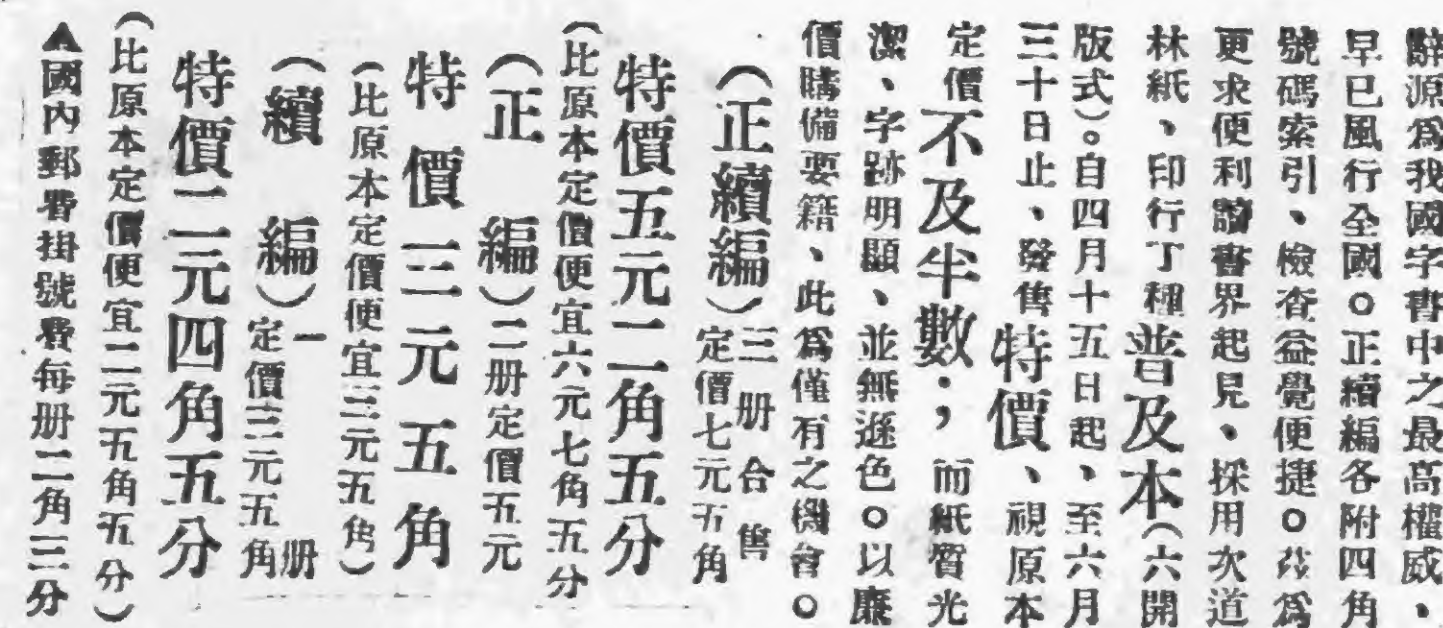 辭源爲我國字書中之最高權威、
早已風行全國。正續編各附四角
號碼索引、檢查益覺便捷。茲爲
更求便利讀書界起見、採用次道
林紙、印行丁種普及本(六開
版式)。自四月十五日起、至六月
三十日止、發售特價、視原本
定價不及半數;而紙質光
潔、字跡明顯、並無遜色。以廉
價購備要籍、此爲僅有之機會。
(正續編)三册合售
定價七元五角
特價五元二角五分
(比原本定價便宜六元七角五分
(正編)二册定價五元
特價三元五角
(比原本定價便宜三元五角)
(續編)一册
定價三元五角
特價二元四角五分
(比原本定價便宜二元五角五分)
▲國內郵費掛號費每册二角三分